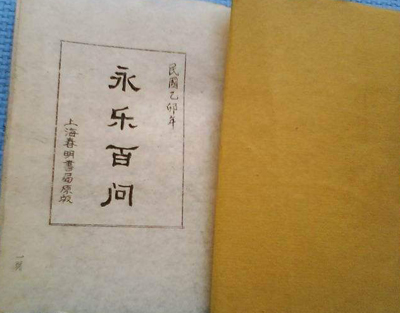 民國乙卯年
永乐百问
上海春明書局原版